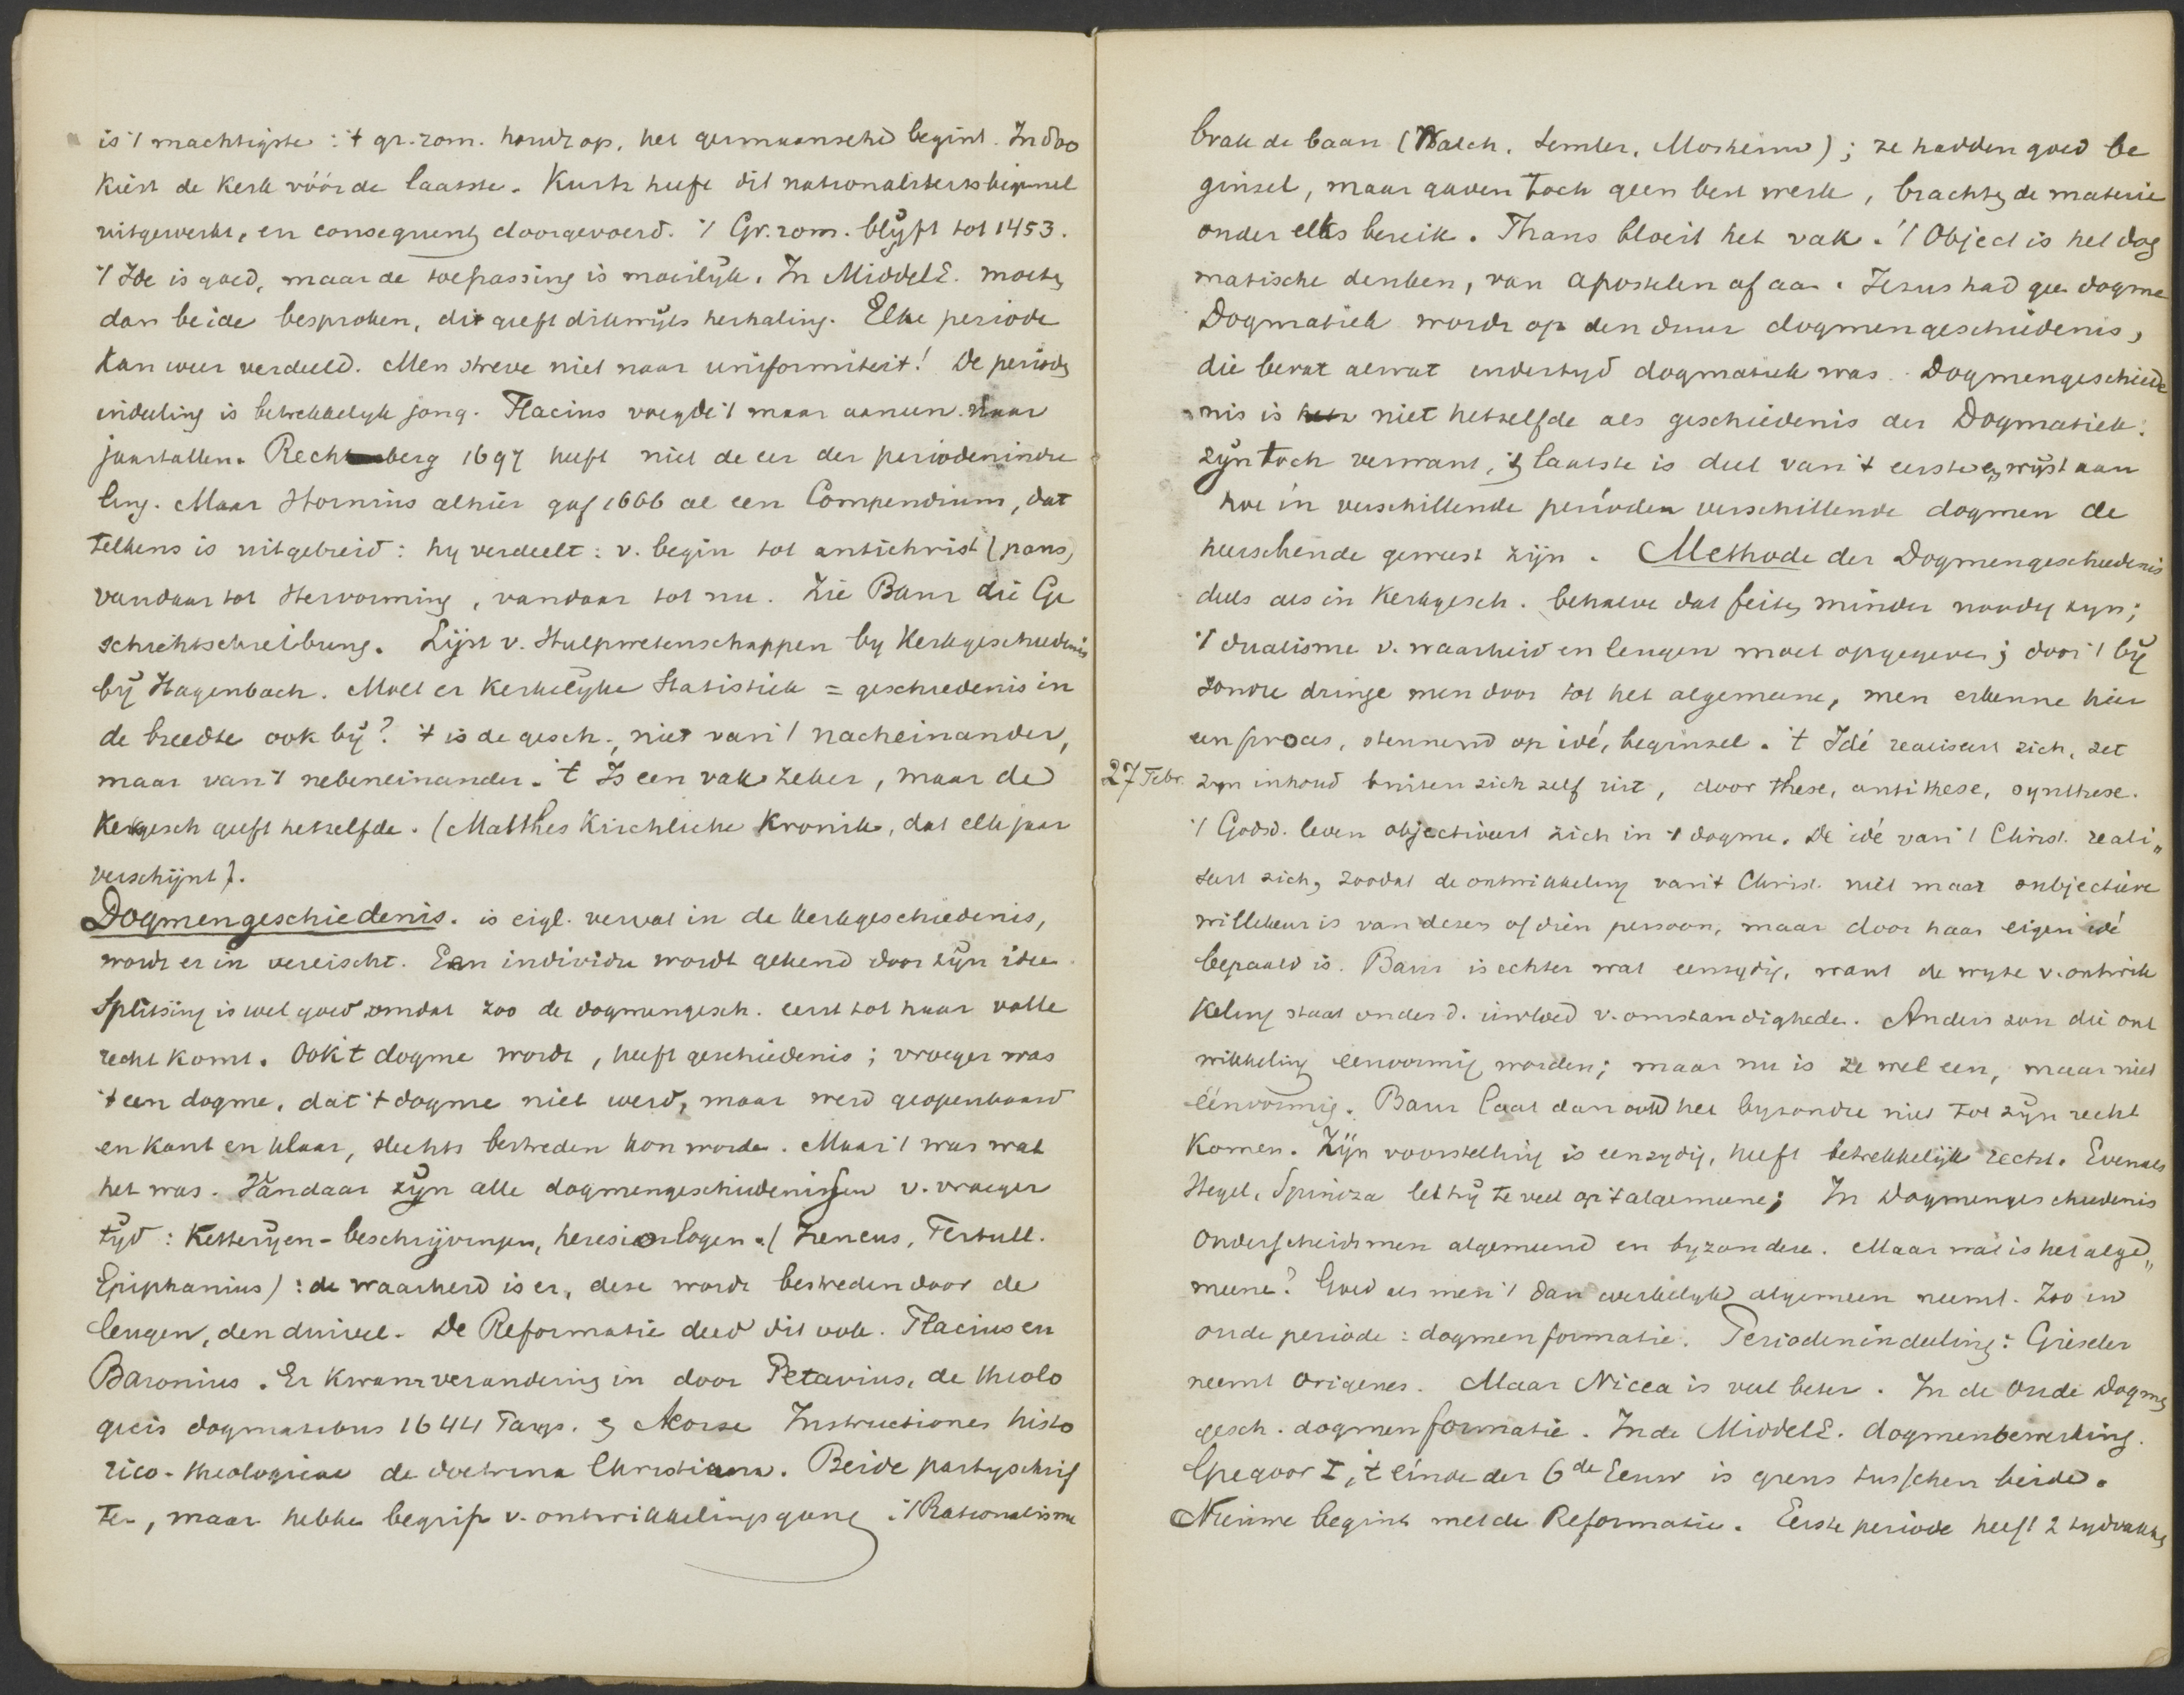 is 't machtigste : 't gr. rom. houdt op, het germaansche begint. In 800
kiest de Kerk vóór de laatste. Kurtz heeft dit nationaliteitsbeginsel
uitgewerkt, en consequent doorgevoerd. 't Gr. rom. blijft tot 1453.
't Ide is goed, maar de toepassing is moeilijk. In MiddelE. moeten
dan beide besproken, dit geeft dikwijls herhaling. Elke periode
kan weer verdeeld. Men streve niet naar uniformiteit! De perioden
indeeling is betrekkelijk jong. Flacius voegde 't maar aaneen naar
jaartallen. Rechenberg 1697 heeft niet de eer der periodenindee
ling. Maar Hornius alhier gaf 1666 al een Compendium, dat
telkens is uitgebreid : hy verdeelt : v. begin tot antichrist (paus)
vandaar tot Hervorming, vandaar tot nu. Zie Baur die Ge
schichtschreibung. Lijst v. Hulpwetenschappen by Kerkgeschiedenis
bij Hagenbach. Moet er Kerkelijke Statistiek = geschiedenis in
de breedte ook bij? 't is de gesch., niet van 't nacheinander,
maar van 't nebeneinander. 't Is een vak zeker, maar de
Kerkgesch geeft hetzelfde. (Matthes Kirchliche Kronik, dat elk jaar
verschijnt).
Dogmengeschiedenis. is eigl. vervat in de kerkgeschiedenis,
wordt er in vereischt. Een individu wordt gekend door zijn idee.
Splitsing is wel goed omdat zoo de dogmengesch. eerst tot haar volle
recht komt. Ook 't dogme wordt, heeft geschiedenis; vroeger was
't een dogme, dat 't dogme niet werd, maar werd geopenbaard
en kant en klaar, slechts bestreden kon worden. Maar 't was wat
het was. Vandaar zijn alle dogmengeschiedenissen v. vroeger
tijd : Ketterijen-beschrijvingen, heresiologen. (Ireneus, Tertull.
Epiphanius) : de waarheid is er, deze wordt bestreden door de
leugen, den duivel. De Reformatie deed dit ook. Flacius en
Baronius. Er kwam verandering in door Petavius, de theolo
gicis dogmatibus 1644 Pargs. en Morse Instructiones histo
rico-theologicae de doctrina Christiana. Beide partyschrif
ten, maar hebben begrip v. ontwikkelingsgang. 't Rationalisme
brak de baan (Walch, Semler, Mosheim); ze hadden goed be
ginsel, maar gaven toch geen best werk, brachten de materie
onder elks bereik. Thans bloeit het vak. 't Object is het dog
matische denken, van apostelen af aan. Jezus had geen dogme
Dogmatiek wordt op den duur dogmengeschiedenis,
die bevat al wat indertijd dogmatiek was. Dogmengeschiede
nis is niet hetzelfde als geschiedenis der Dogmatiek:
zijn toch verwant, 't laatste is deel van 't eerste en wijst aan
hoe in verschillende perioden verschillende dogmen de
heerschende geweest zijn. Methode der Dogmengeschiedenis
deels als in Kerkgesch. behalve dat feiten minder noodig zyn;
't dualisme v. waarheid en leugen moet opgegeven; door 't bij
zondre dringe men door tot het algemeene, men erkenne hier
een proces, steunend op idé, beginsel. 't Idé realiseert zich, zet
27 Febr. zyn inhoud buiten zich zelf uit, door these, antithese, synthese.
't Godsd. leven objectiveert zich in 't dogme. De idé van 't Christ. reali„
seert zich, zoodat de ontwikkeling van 't Christ. niet maar subjectieve
willekeur is van dezen of dien persoon, maar door haar eigen idé
bepaald is. Baur is echter wat eenzydig, want de wyze v. ontwik
keling staat onder d. invloed v. omstandigheden. Anders zou die ont
wikkeling eenvormig worden; maar nu is ze wel een, maar niet
éénvormig. Baur laat dan ook het byzondre niet tot zijn recht
komen. Zijn voorstelling is eenzydig, heeft betrekkelijk recht. Evenals
Hegel, Spinoza let hij te veel op 't algemeene; In Dogmengeschiedenis
onderscheidt men algemeene en byzondere. Maar wat is het alge„
meene? Goed als men 't dan werkelijk algemeen neemt. Zoo in
oude periode : dogmenformatie. Periodenindeeling : Gieseler
neemt Origenes. Maar Nicea is veel beter. In de Oude Dogmen
gesch. dogmenformatie. In de MiddelE. dogmenbewerking.
Gregoor I, 't einde der 6de Eeuw is grens tusschen beide.
Nieuwe begint met de Reformatie. Eerste periode heeft 2 tydvakken